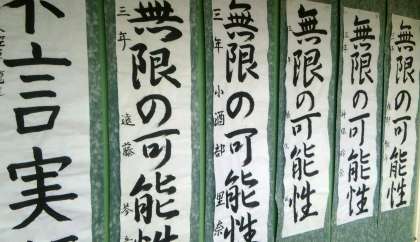 不言実
無限の可能性
三年 遠藤
無限の可能性
三年 小酒部 里奈
無限の可能性
無限の可能性
無限の可能性